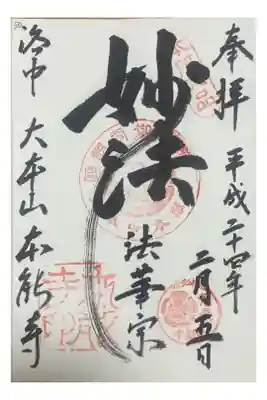 奉拝
平成二十四年
二月五日
妙法
法華宗
洛中
大本山本能寺